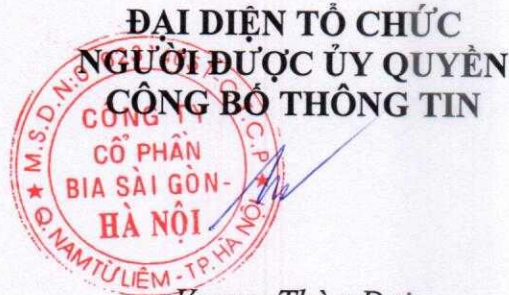 ĐẠI DIỆN TỔ CHỨC
NGƯỜI ĐƯỢC ỦY QUYỀN
CÔNG BỐ THÔNG TIN
M.S.D.N:
C.T.C.P
CÔNG TY
CỔ PHẦN
BIA SÀI GÒN-
HÀ NỘI
Q.NAM TỪ LIÊM - TP. HÀ NỘI